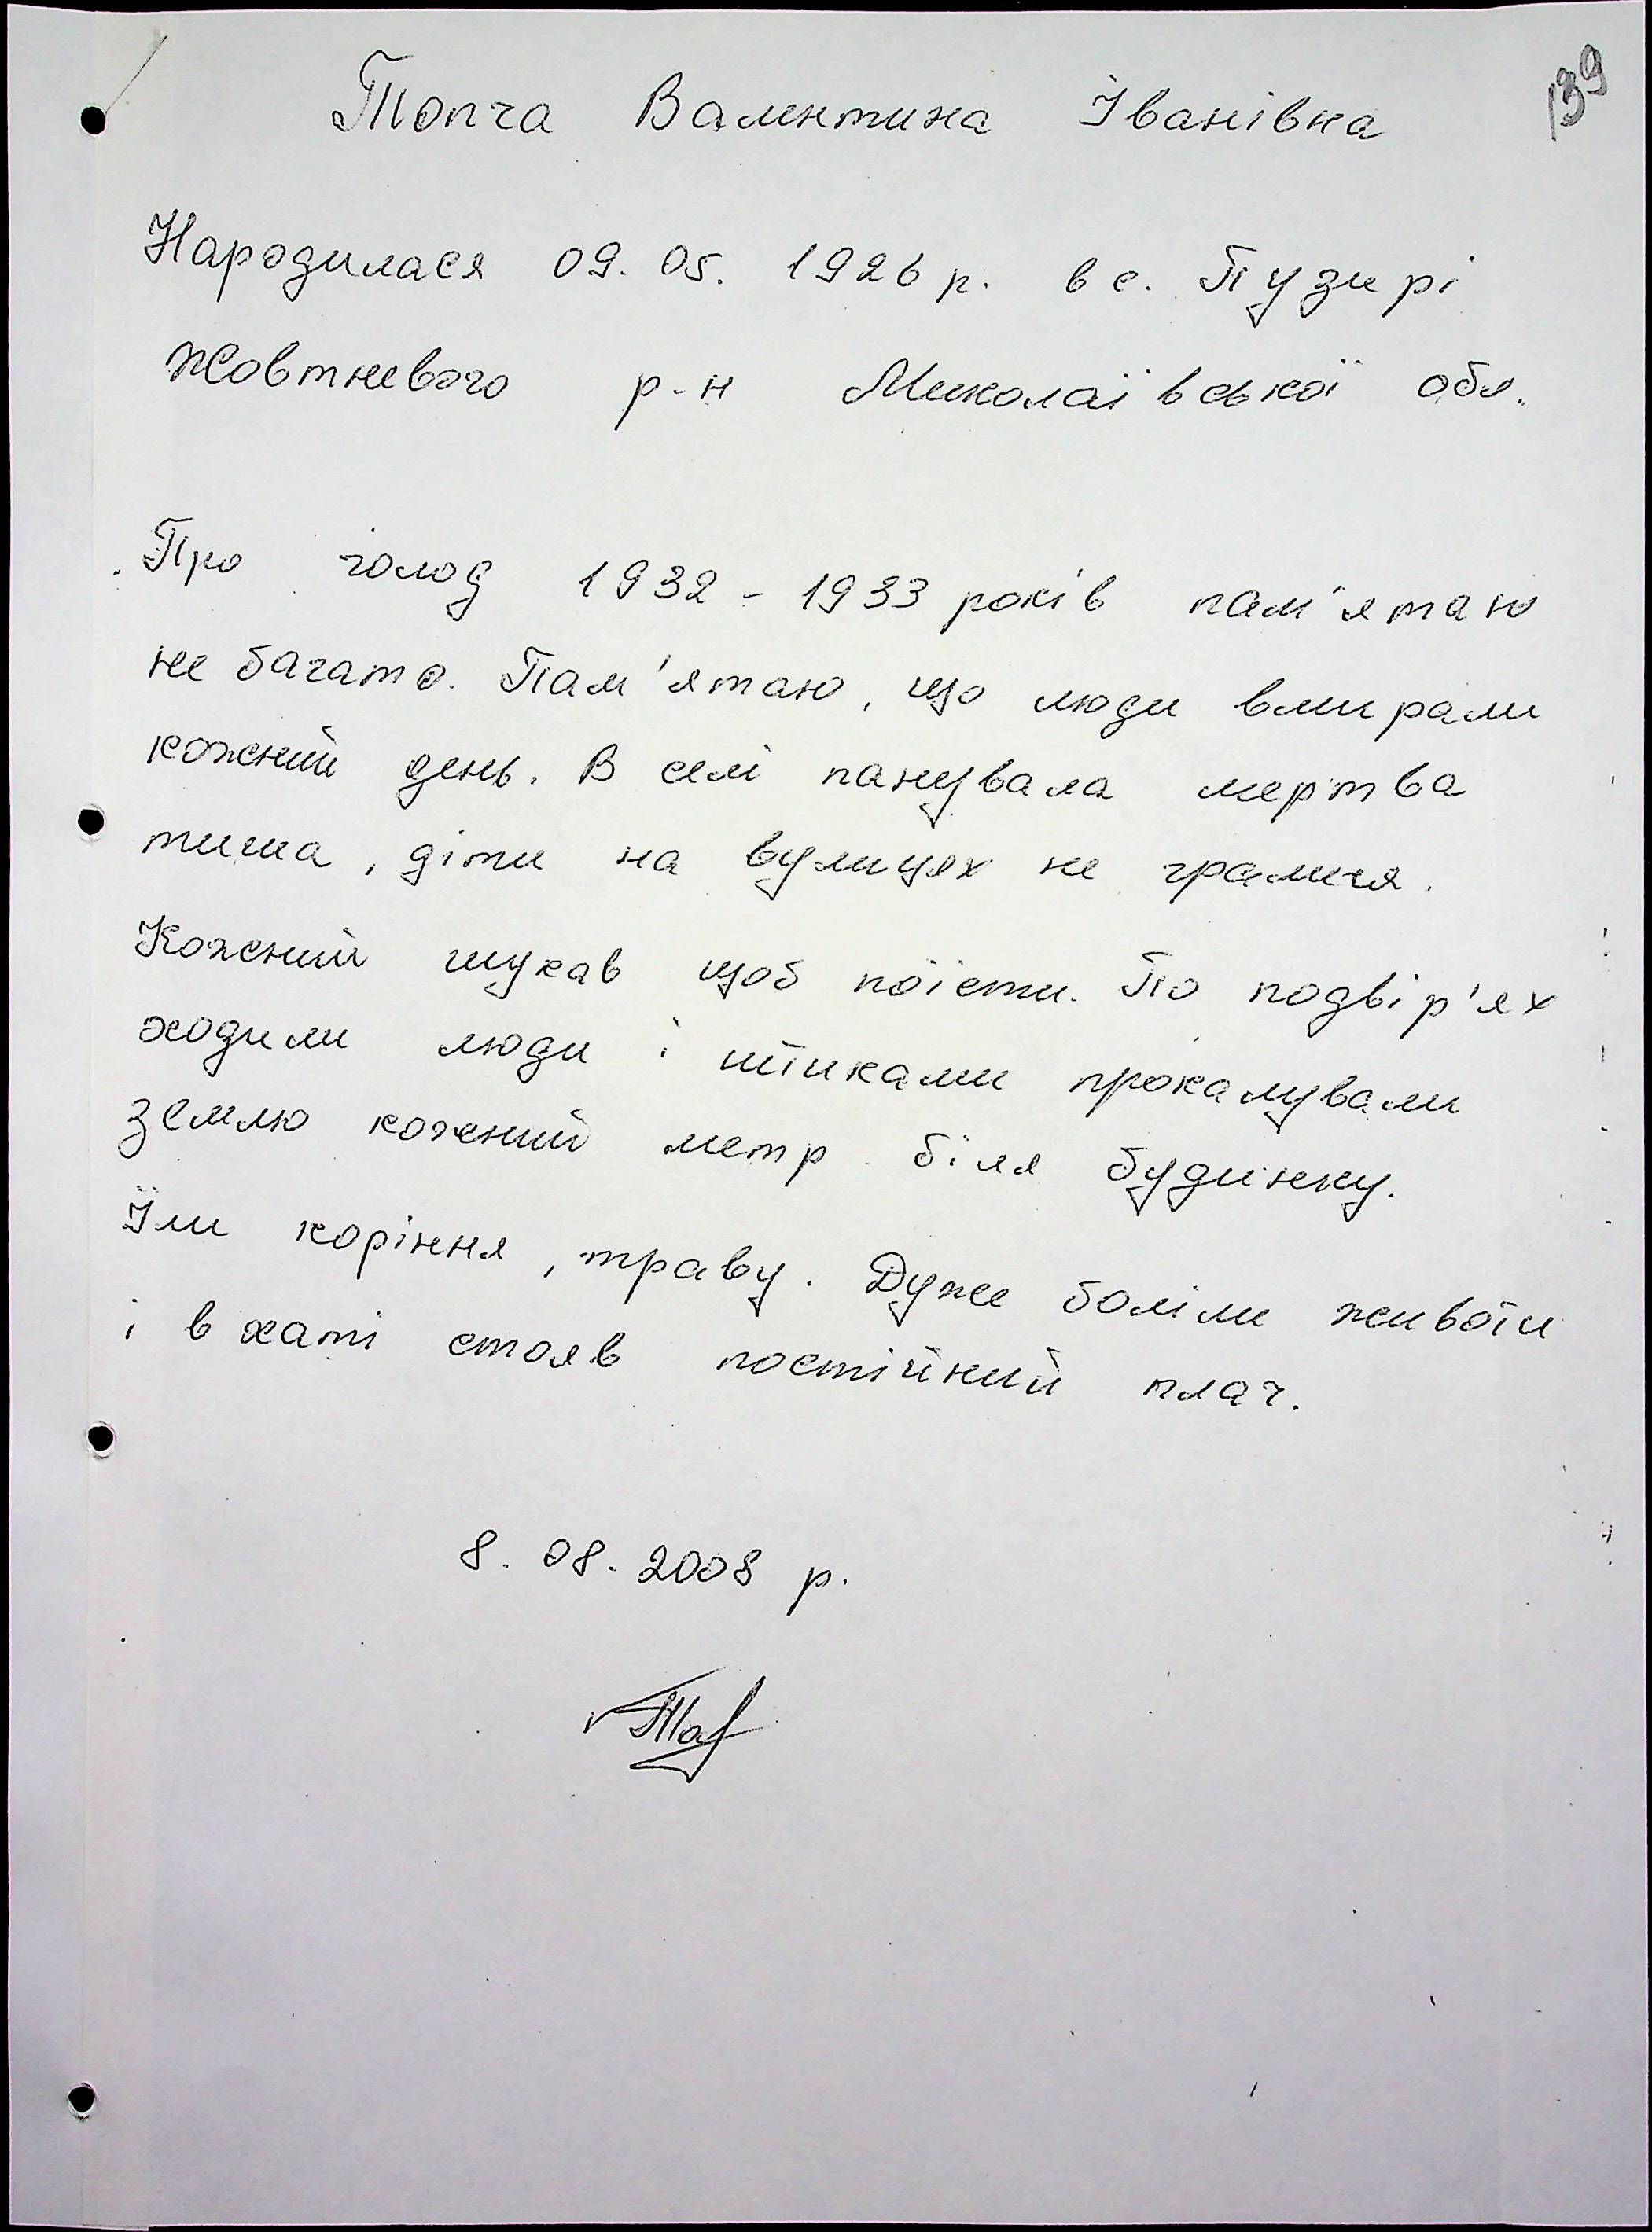 139
Топча Валентина Іванівна
Народилася 09.05.1926 р. в с. Пузирі
Жовтневого р-н Миколаївської обл.
Про голод 1932-1933 років пам'ятаю
не багато. Пам'ятаю, що люди вмирали
кожний день. В селі панувала мертва
тиша, діти на вулицях не грались.
Кожний шукав щоб поїсти. По подвір'ях
ходили люди і штиками проколували
землю кожний метр біля будинку.
Їли коріння, траву. Дуже боліли животи
і в хаті стояв постійний плач.
8.08.2008 р.